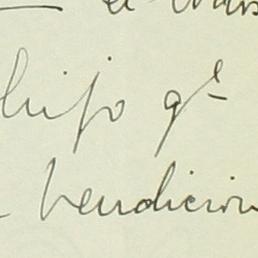 hijo qe
bendicion